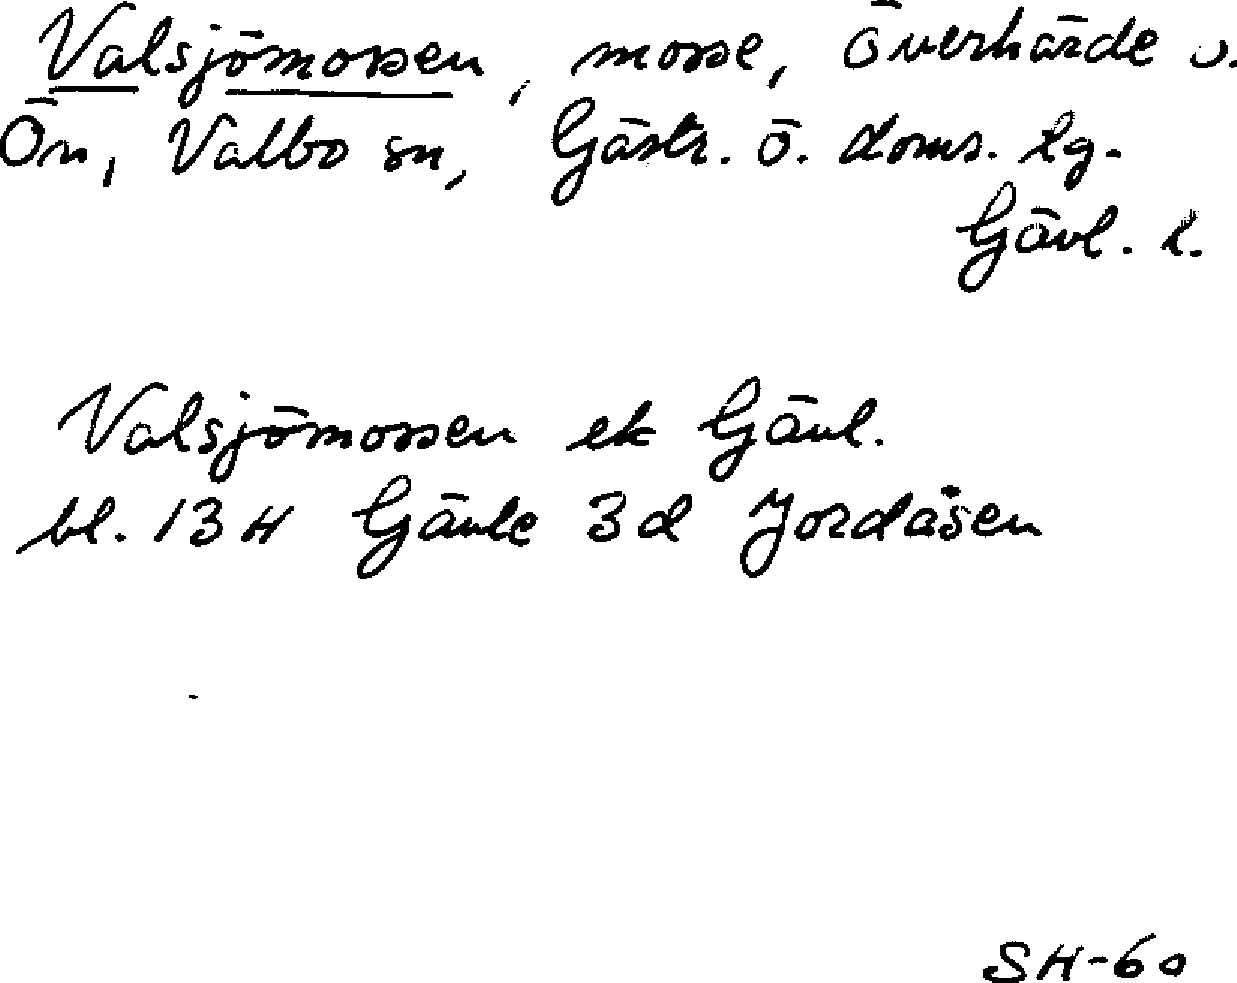 Valsjömossen, mosse, Överhärde o.
Ön, Valbo sn, Gästr. ö. doms. tg.
Gävl. l.
Valsjömossen ek Gävl.
bl. 13H Gävle 3d Jordåsen
SH-60